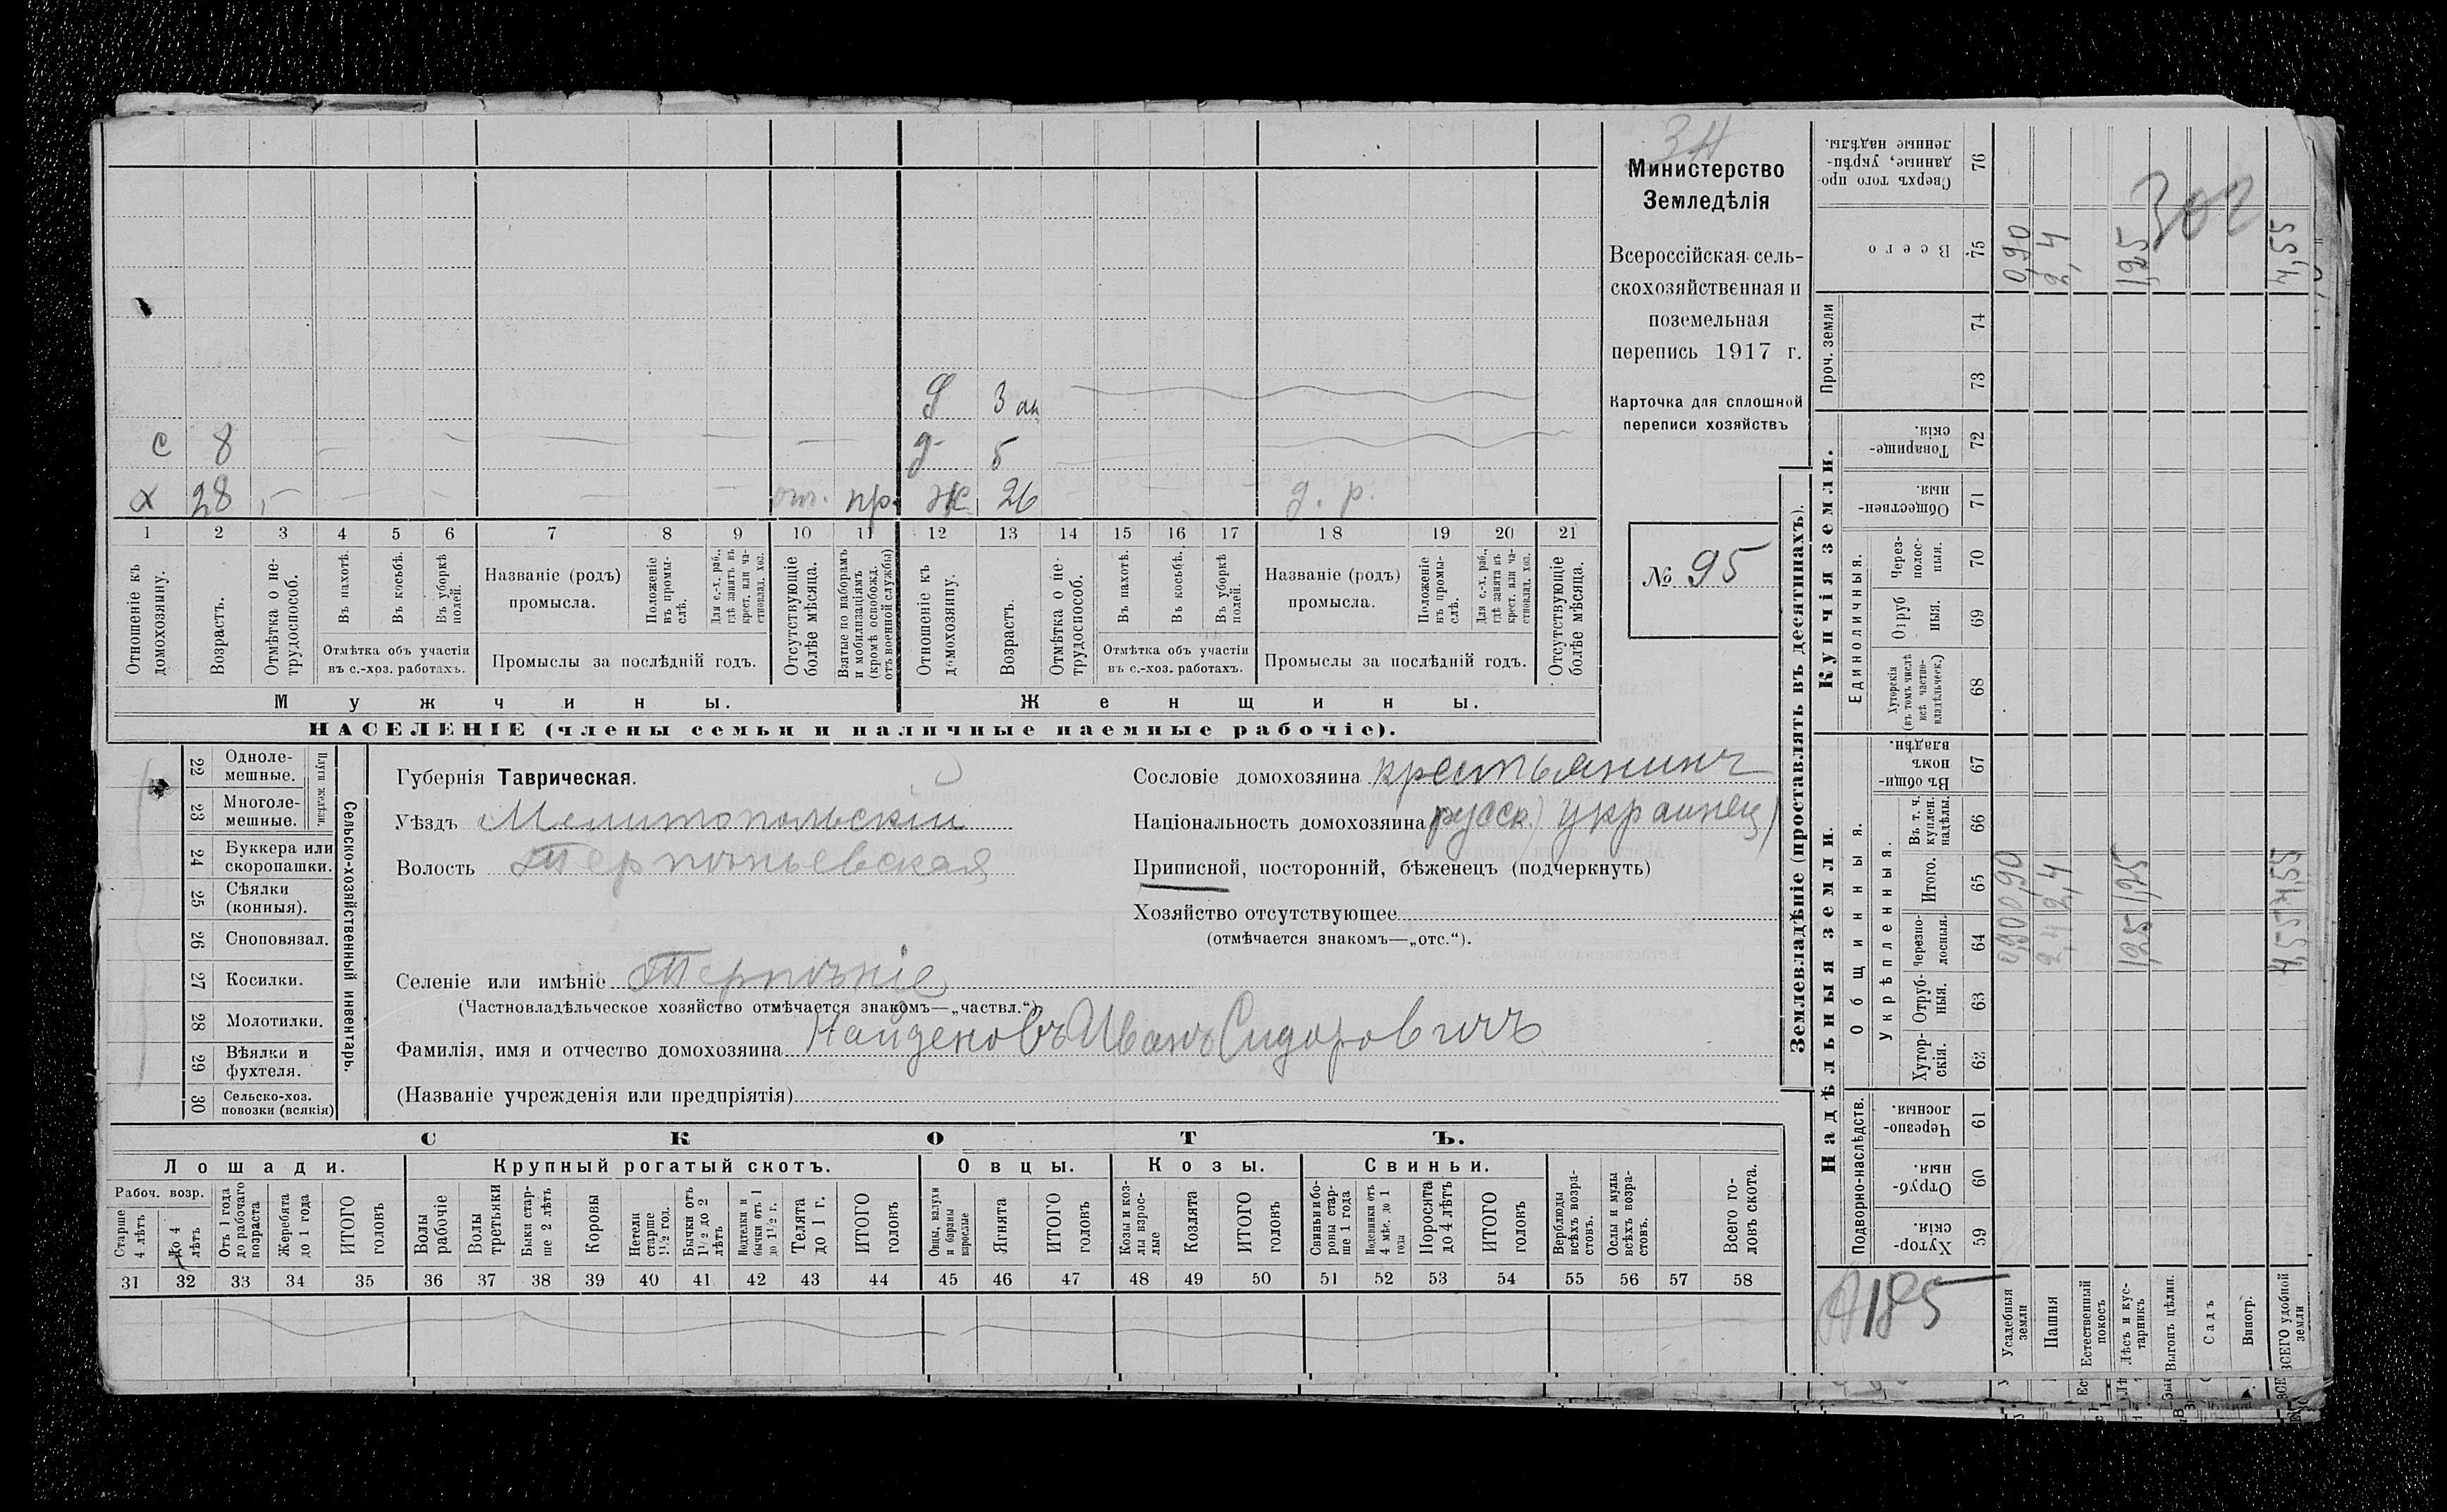 34
Министерство
Земледѣлія
Всероссійская сель-
скохозяйственная и
поземельная
перепись 1917 г.
Карточка для сплошной
переписи хозяйствъ
№ 95
д 3
с 8 д 5
х 28 от. пр. ж 26 д. р.
1 2 3 4 5 6 7 8 9 10 11 12 13 14 15 16 17 18 19 20 21
Отношеніе къ домохозяину.
Возрастъ.
Отмѣтка о не-трудоспособ.
Въ пахотѣ.
Въ косьбѣ.
Въ уборкѣ полей.
Отмѣтка объ участіи
въ с.-хоз. работахъ.
Названіе (родъ)
промысла.
Положеніе въ промы-слѣ.
Для с.-х. раб., гдѣ занятъ въ крест. или ча-стновлад. хоз.
Промыслы за послѣдній годъ.
Отсутствующіе болѣе мѣсяца.
Взятые по наборамъ и мобилизаціямъ (кромѣ освобожд. отъ военной службы)
Отношеніе къ домохозяину.
Возрастъ.
Отмѣтка о не-трудоспособ.
Въ пахотѣ.
Въ косьбѣ.
Въ уборкѣ полей.
Отмѣтка объ участіи
въ с.-хоз. работахъ.
Названіе (родъ)
промысла.
Положеніе въ промы-слѣ.
Для с.-х. раб., гдѣ занята въ крест. или ча-стновлад. хоз.
Промыслы за послѣдній годъ.
Отсутствующіе болѣе мѣсяца.
Мужчины.
Женщины.
НАСЕЛЕНІЕ (члены семьи и наличные наемные рабочіе).
22 Одноле-мешные.
23 Многоле-мешные.
Плуги желѣзн.
24 Буккера или скоропашки.
25 Сѣялки (конныя).
26 Сноповязал.
27 Косилки.
28 Молотилки.
29 Вѣялки и фухтеля.
30 Сельско-хоз. повозки (всякія)
Сельско-хозяйственный инвентарь.
Губернія Таврическая.
Уѣздъ Мелитопольскій
Волость Терпѣньевская
Селеніе или имѣніе Терпѣніе
(Частновладѣльческое хозяйство отмѣчается знакомъ—„частвл.“)
Фамилія, имя и отчество домохозяина Найденовъ Иванъ Сидоровичъ
(Названіе учрежденія или предпріятія)
Сословіе домохозяина крестьянинъ
Національность домохозяина русск. (украинец)
Приписной, посторонній, бѣженецъ (подчеркнуть)
Хозяйство отсутствующее
(отмѣчается знакомъ—„отс.“).
СКОТЪ.
Лошади. Крупный рогатый скотъ. Овцы. Козы. Свиньи.
Рабоч. возр.
Старше 4 лѣтъ
До 4 лѣтъ
Отъ 1 года до рабочаго возраста
Жеребята до 1 года
ИТОГО головъ
Волы рабочіе
Волы третьяки
Быки стар-ше 2 лѣтъ
Коровы
Нетели старше 1½ год.
Бычки отъ 1½ до 2 лѣтъ
Подтелки и бычки отъ 1 до 1½ г.
Телята до 1 г.
ИТОГО головъ
Овцы, валухи и бараны взрослые
Ягнята
ИТОГО головъ
Козы и коз-лы взрос-лые
Козлята
ИТОГО головъ
Свиньи и бо-ровы стар-ше 1 года
Подсвинки отъ 4 мѣс. до 1 года
Поросята до 4 лѣтъ
ИТОГО головъ
Верблюды всѣхъ возра-стовъ.
Ослы и мулы всѣхъ возра-стовъ.
Всего го-ловъ скота.
31 32 33 34 35 36 37 38 39 40 41 42 43 44 45 46 47 48 49 50 51 52 53 54 55 56 57 58
Землевладѣніе (проставлять въ десятинахъ).
Надѣльныя земли.
Купчія земли.
Проч. земли
Подворно-наслѣдств.
Общинныя.
Укрѣпленныя.
Единоличныя.
Хутор-скія. 59
Отруб-ныя. 60
Черезпо-лосныя. 61
Хутор-скія. 62
Отруб-ныя. 63
Черезпо-лосныя. 64
Итого. 65
Въ т. ч. куплен. надѣлы. 66
Въ общи-номъ владѣн. 67
Хуторскія (въ томъ числѣ всѣ частно-владѣльческ.) 68
Отруб ныя. 69
Через-полос-ныя. 70
Обществен-ныя. 71
Товарище-скія. 72
73
74
Всего 75
Сверхъ того про-данные, укрѣп-ленные надѣлы. 76
А185
302
Усадебныя земли 0,90 0,90 0,90
Пашня 2,4 2,4 2,4
Естественный покосъ
Лѣсъ и кус-тарникъ 1,25 1,25 1,25
Выгонъ цѣлин.
Садъ
Виногр.
ВСЕГО удобной земли 4,55 4,55 4,55